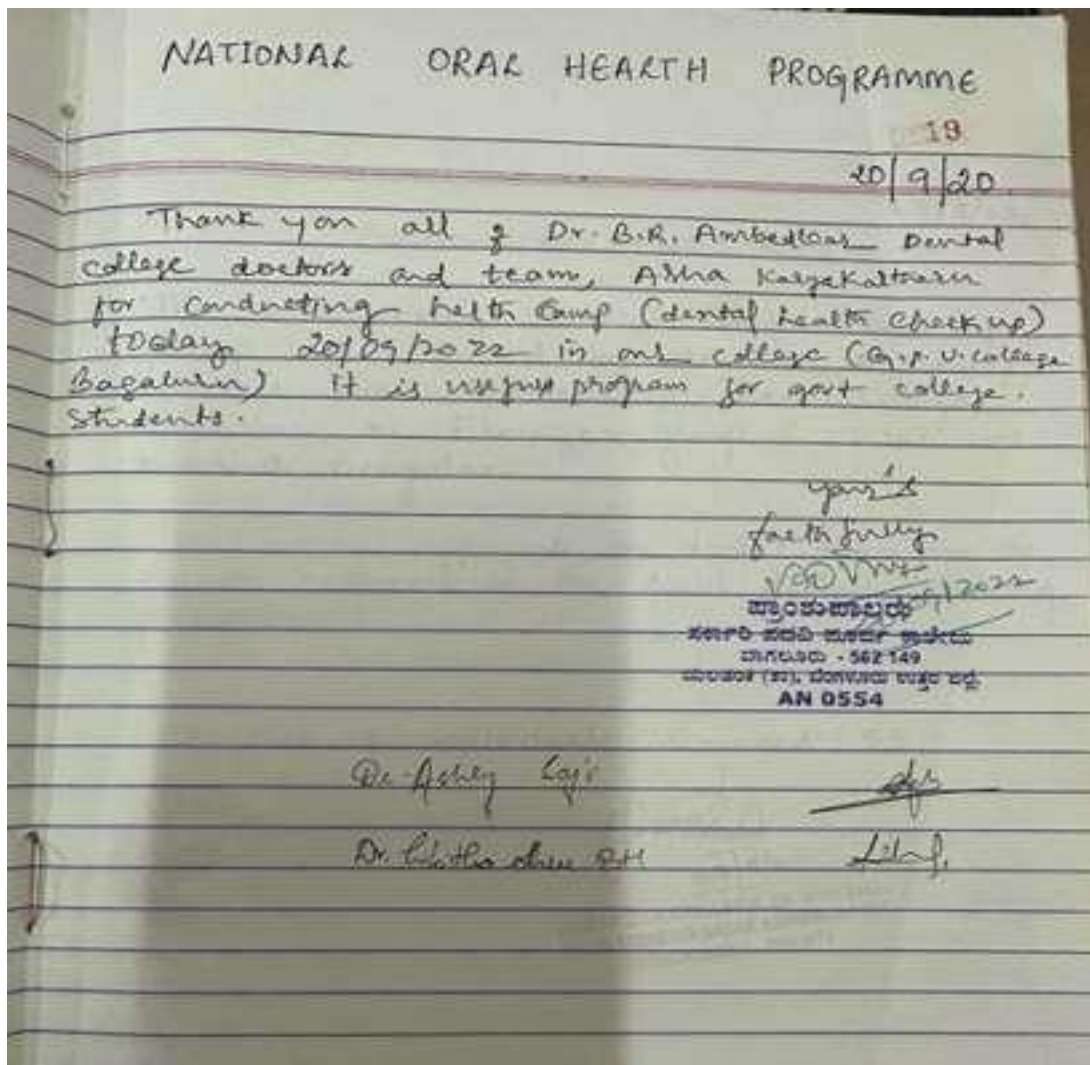 NATIONAL ORAL HEALTH PROGRAMME
19
20/9/20.
Thank you all of Dr. B.R. Ambedkar Dental
college doctors and team, Asha
for conducting helth camp (dental health check up)
today 20/09/2022 in our college (G.P.U. college
Bagaluru) It is useful program for govt college.
students.
your's
faithfully
09/2022
ಪ್ರಾಂಶುಪಾಲರು
ಸರ್ಕಾರಿ ಪದವಿ ಪೂರ್ವ ಕಾಲೇಜು
ಬಾಗಲೂರು - 562 149
ಬೆಂಗಳೂರು ಉತ್ತರ ಜಿಲ್ಲೆ.
AN 0554
Dr. Ashey
Dr.